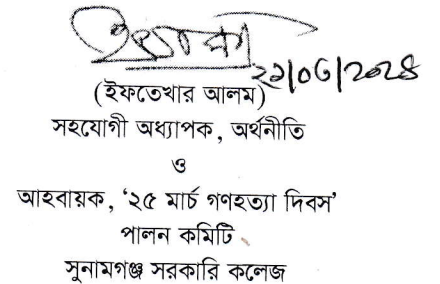 ২১/০৩/২০২৪
(ইফতেখার আলম)
সহযোগী অধ্যাপক, অর্থনীতি
ও
আহবায়ক, ‘২৫ মার্চ গণহত্যা দিবস’
পালন কমিটি
সুনামগঞ্জ সরকারি কলেজ